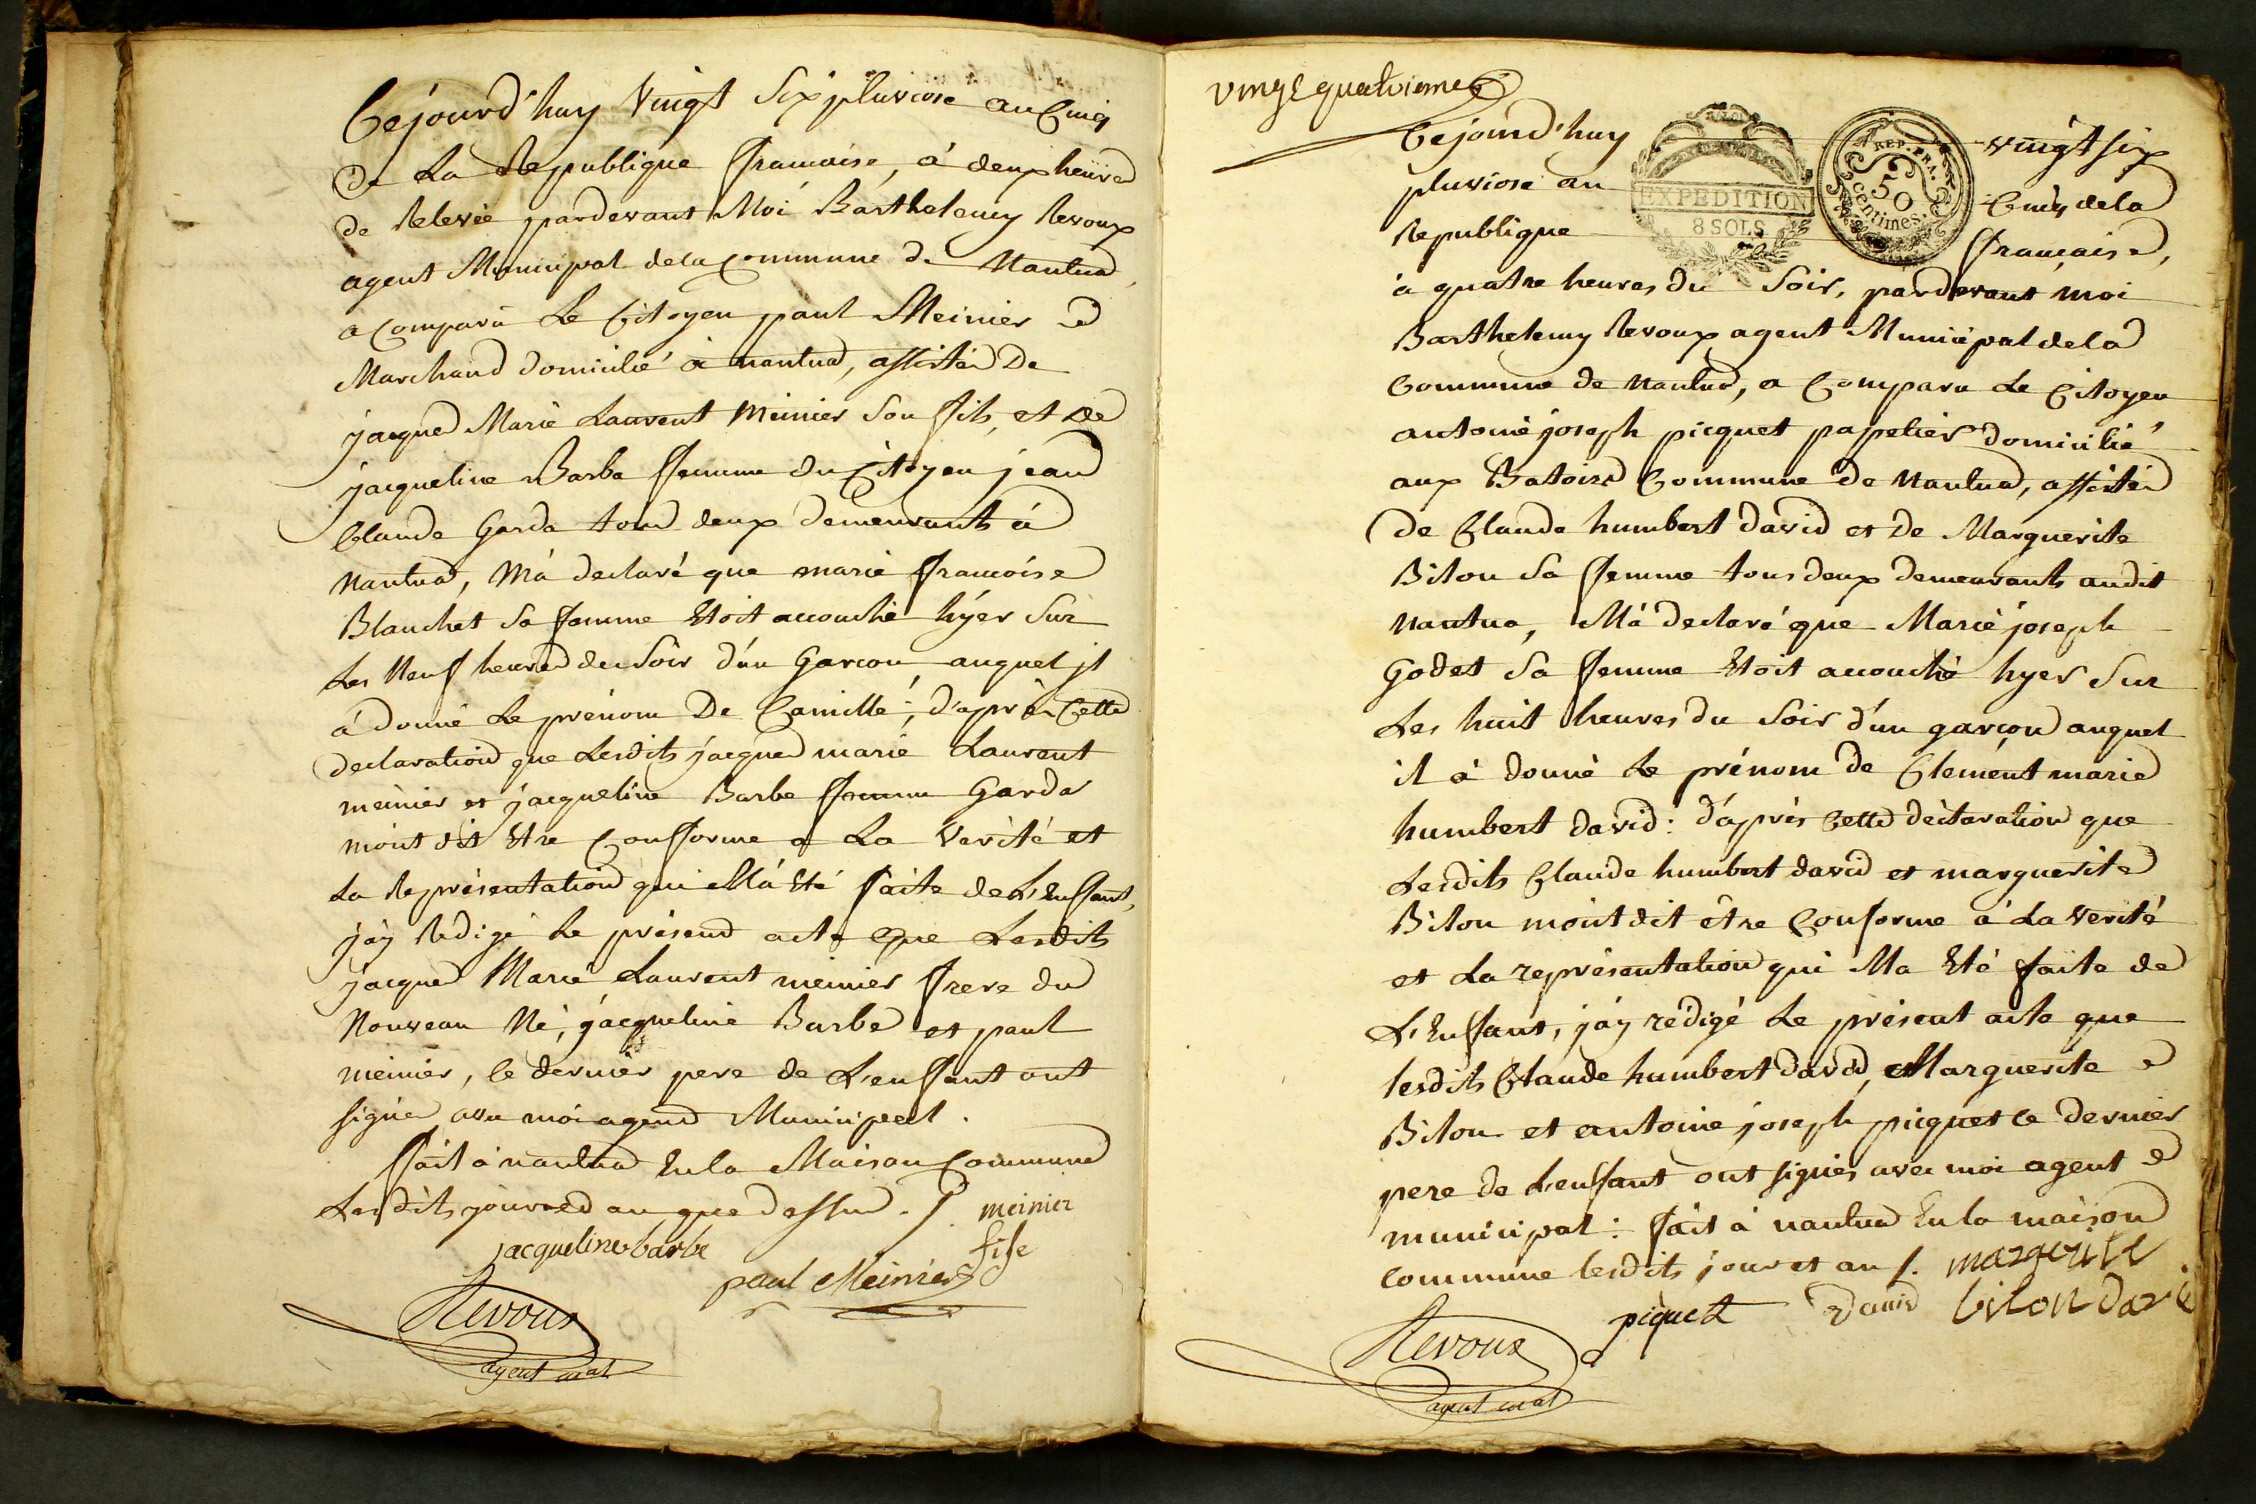 Cejourd'huy vingt six pluviose an Cinq
De La Republique francaise, à deux heures
de Relevée pardevant Moi Barthelemy Revoux
agent Municipal de la Commune de Nantua,
a Comparu Le Citoyen paul Meinier
Marchand domicilié à nantua, assisté De
jacques Marie Laurent Meinier Son fils, et de
jacqueline Barbe femme du Citoyen jean
Claude Garda tous deux demeurants à
Nantua, M'a declaré que marie francoise
Blanchet Sa femme Etoit accouché hÿer Sur
Les Neuf heures du Soir d'un Garcon, auquel jl
á donné Le prénom De Camille; d'après Cette
declaration que Lesdits jacques marie Laurent
meinier et jacqueline Barbe femme Garda
mont dit Etre Conforme a La Verité et
La Représentation qui M'a Eté faite de L'Enfant,
j'ay Redigé Le présend acte Que Lesdits
jacques Marie Laurent meinier frere du
Nouveau Né, jacqueline Barbe et paul
meinier, le dernier pere de L'enfant ont
signé avec moi agend Municipal.
fait à nantua En la Maison Commune
Lesdits jours et an que dessus. J. meinier
jacqueline barbe fils
paul Meinier
Revoux
agent mal
vingt quatrieme
Cejourd'huy vingt six
EXPEDITION
8 SOLS
REP. FRA.
50
centimes.
pluviose an Cinq de la
Republique française,
à quatre heures du Soir, pardevant moi
Barthelemy Revoux agent Municipal de la
Commune de Nantua, a Comparu Le Citoyen
antoine joseph picquet papetier domicilié
aux Batoirs Commune de Nantua, assisté
de Claude humbert david et de Marguerite
Bilon Sa femme tous deux demeurants audit
Nantua, M'á declaré que Marie joseph
Godet Sa femme Etoit accouché hyer Sur
Les huit heures du Soir d'un garçon auquel
il à donné Le prénom de Clement marie
humbert david: d'après Cette déclaration que
Lesdits Claude humbert david et marguerite
Bilon mont dit être Conforme à La Verité
et La représentation qui Ma Eté faite de
L'Enfant, j'ay rédigé Le présent acte que
lesdits Claude humbert david, Marguerite
Bilon et antoine joseph picquet ce dernier
pere de L'enfant ont signés avec moi agent
municipal: fait à nantua En la maison
commune lesdits jour et an /. margerite
piquet David bilon davi
Revoux
agent mal